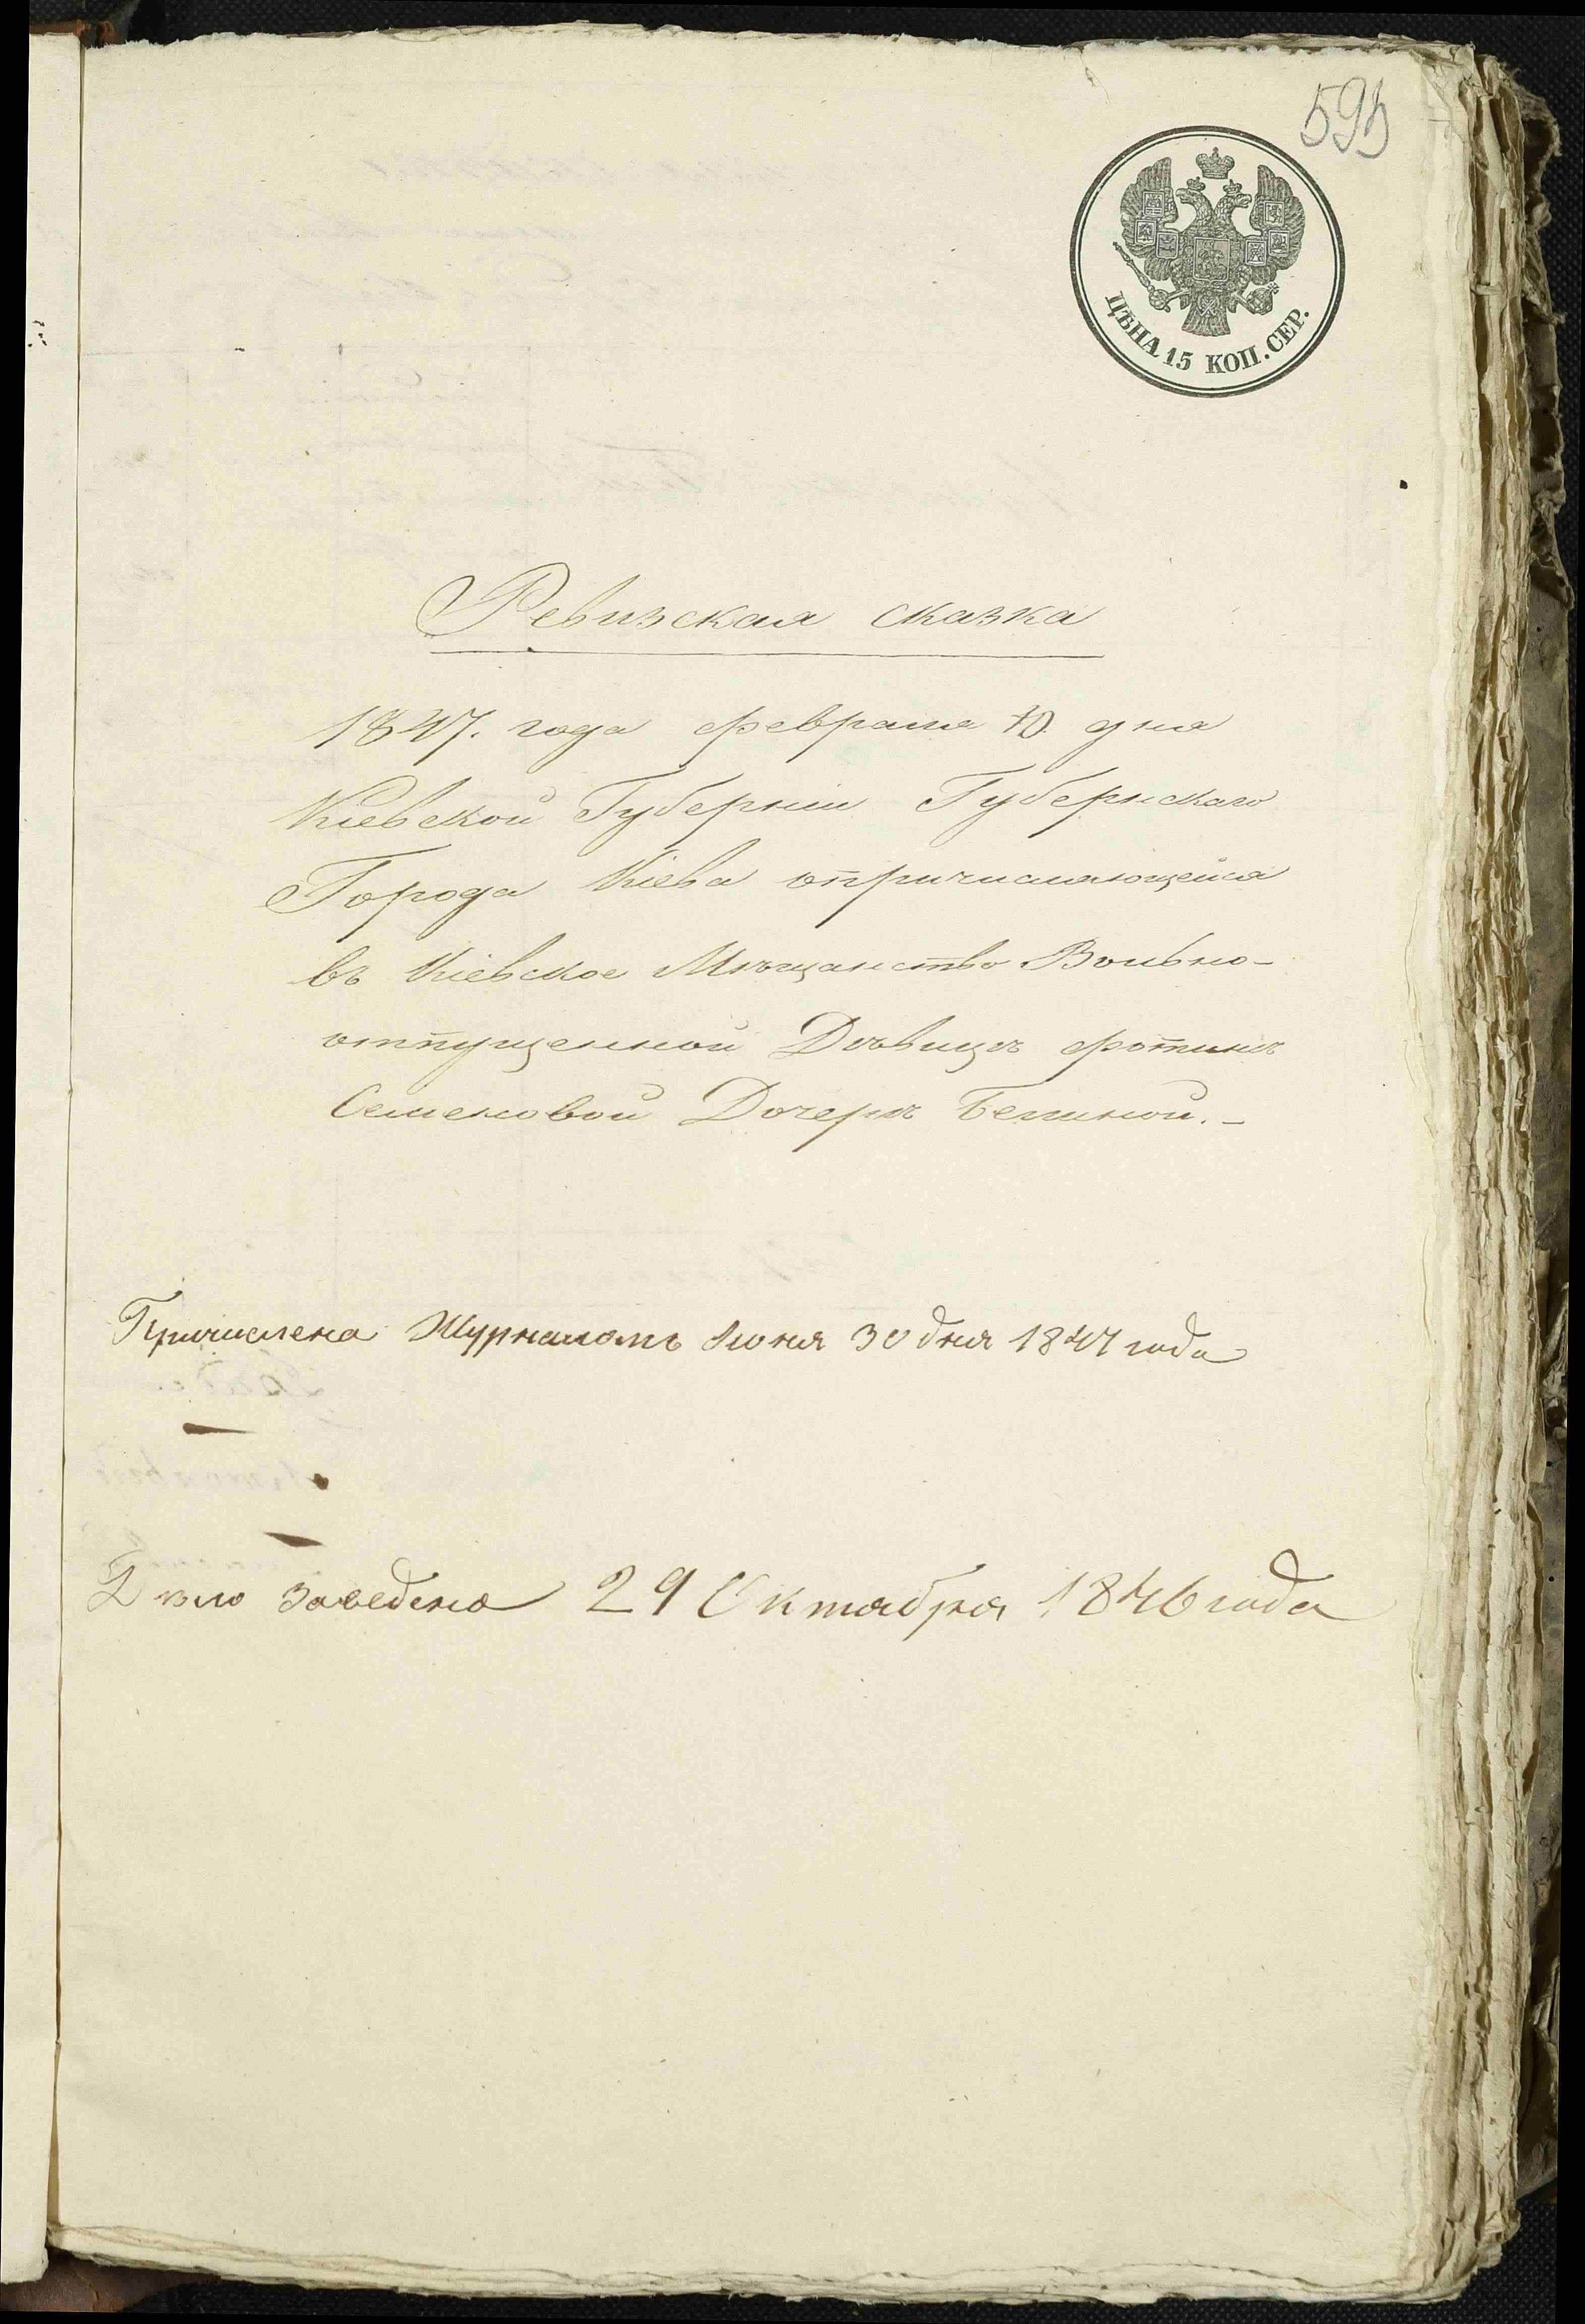 ЦѢНА 15 КОП. СЕР.
Ревизская сказка
1847. года февраля 10. дня
Кіевской Губерніи Губернскаго
Города Кіева опричисляющейся
въ Кіевское Мѣщанство Вольно-
отпущенной Дѣвицѣ Фотинѣ
Семеновой Дочерѣ Белиной.-
Причислена Журналомъ Іюня 30 дня 1847 года
Дѣло заведено 29 Октября 1846 года